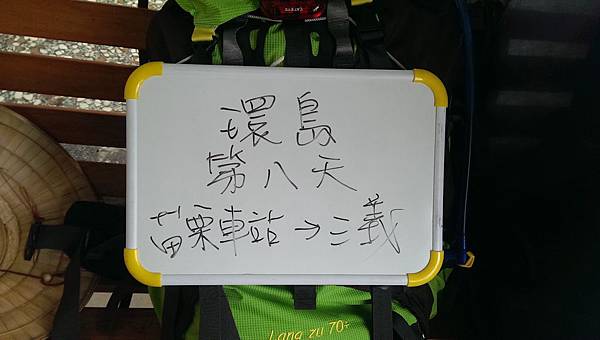 環島
第八天
苗栗車站→三義
CATEYE
Lang zu 70+